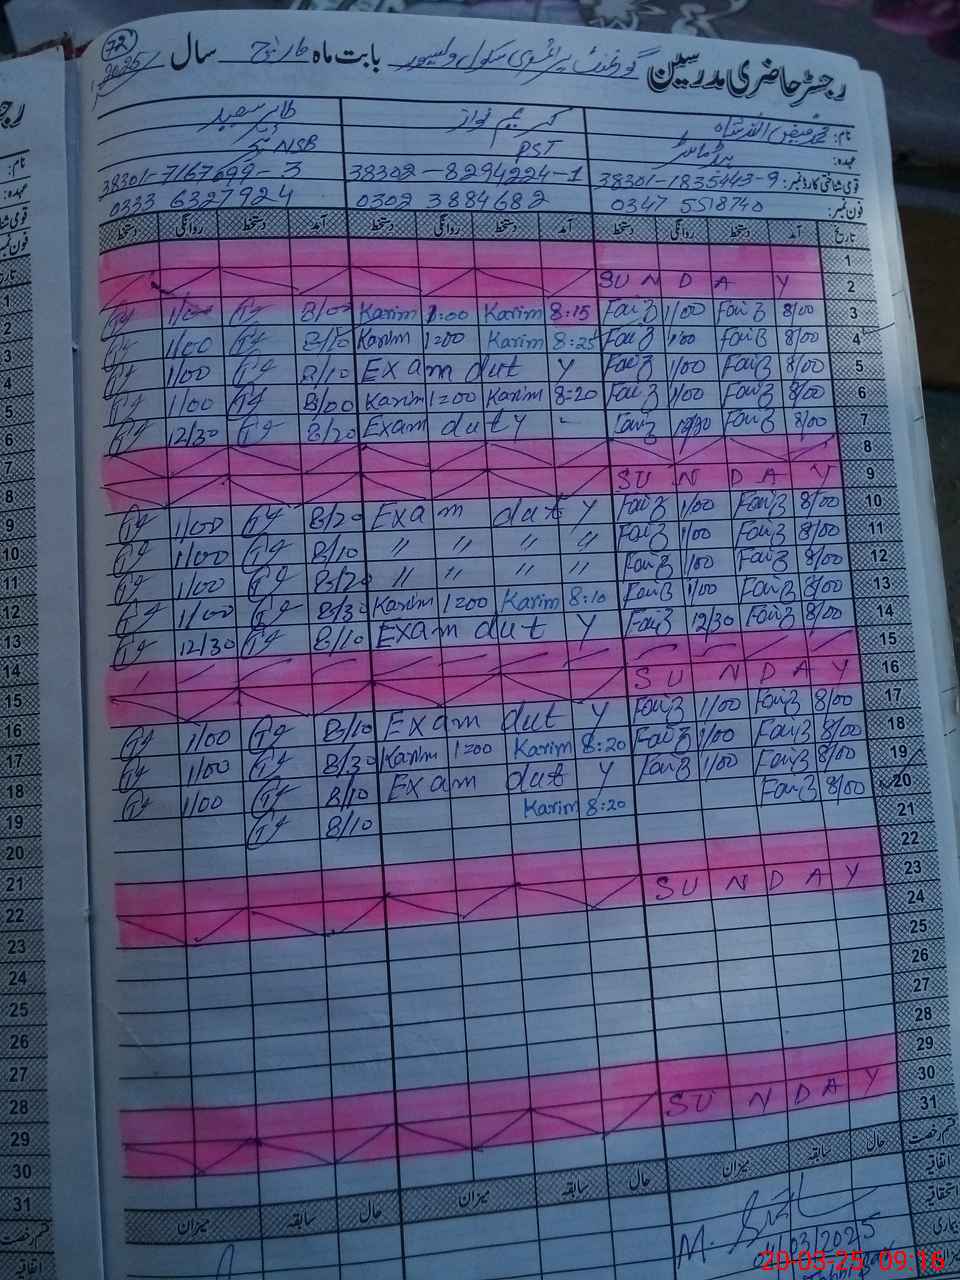 72
2025
رجسٹر حاضری مدرسین گورنمنٹ پرائمری سکول بابت ماہ مارچ سال
نام: محمد فیض اللہ شاہ کریم نواز طاہر سعید
عہدہ: ہیڈ ماسٹر PST NSB
قومی شناختی کارڈ نمبر: 38301-1835443-9 38302-8294224-1 38301-7167699-3
فون نمبر: 0347 5518740 0302 3884682 0333 6327924
تاریخ آمد دستخط روانگی دستخط آمد دستخط روانگی دستخط آمد دستخط روانگی دستخط
1
2 SUNDAY
3 8/00 Faiz 1/00 Faiz 8:15 Karim 1:00 Karim 8/00 1/00
4 8/00 Faiz 1/00 Faiz 8:25 Karim 1=00 Karim 8/10 1/00
5 8/00 Faiz 1/00 Faiz Exam duty 8/10 1/00
6 8/00 Faiz 1/00 Faiz 8:20 Karim 1=00 Karim 8/00 1/00
7 8/00 Faiz 12/30 Faiz Exam duty 8/20 12/30
8
9 SUNDAY
10 8/00 Faiz 1/00 Faiz Exam duty 8/20 1/00
11 8/00 Faiz 1/00 Faiz " " " " 8/10 1/00
12 8/00 Faiz 1/00 Faiz " " " " 8/20 1/00
13 8/00 Faiz 1/00 Faiz 8:10 Karim 1=00 Karim 8/30 1/00
14 8/00 Faiz 12/30 Faiz Exam duty 8/10 12/30
15
16 SUNDAY
17 8/00 Faiz 1/00 Faiz Exam duty 8/10 1/00
18 8/00 Faiz 1/00 Faiz 8:20 Karim 1=00 Karim 8/30 1/00
19 8/00 Faiz 1/00 Faiz Exam duty 8/10 1/00
20 8/00 Faiz 8:20 Karim 8/10
21
22
23 SUNDAY
24
25
26
27
28
29
30 SUNDAY
31
قسم رخصت حال سابقہ میزان حال سابقہ میزان حال سابقہ میزان
اتفاقیہ
استحقاقیہ
بیماری
/03/2025
20-03-25 09:16